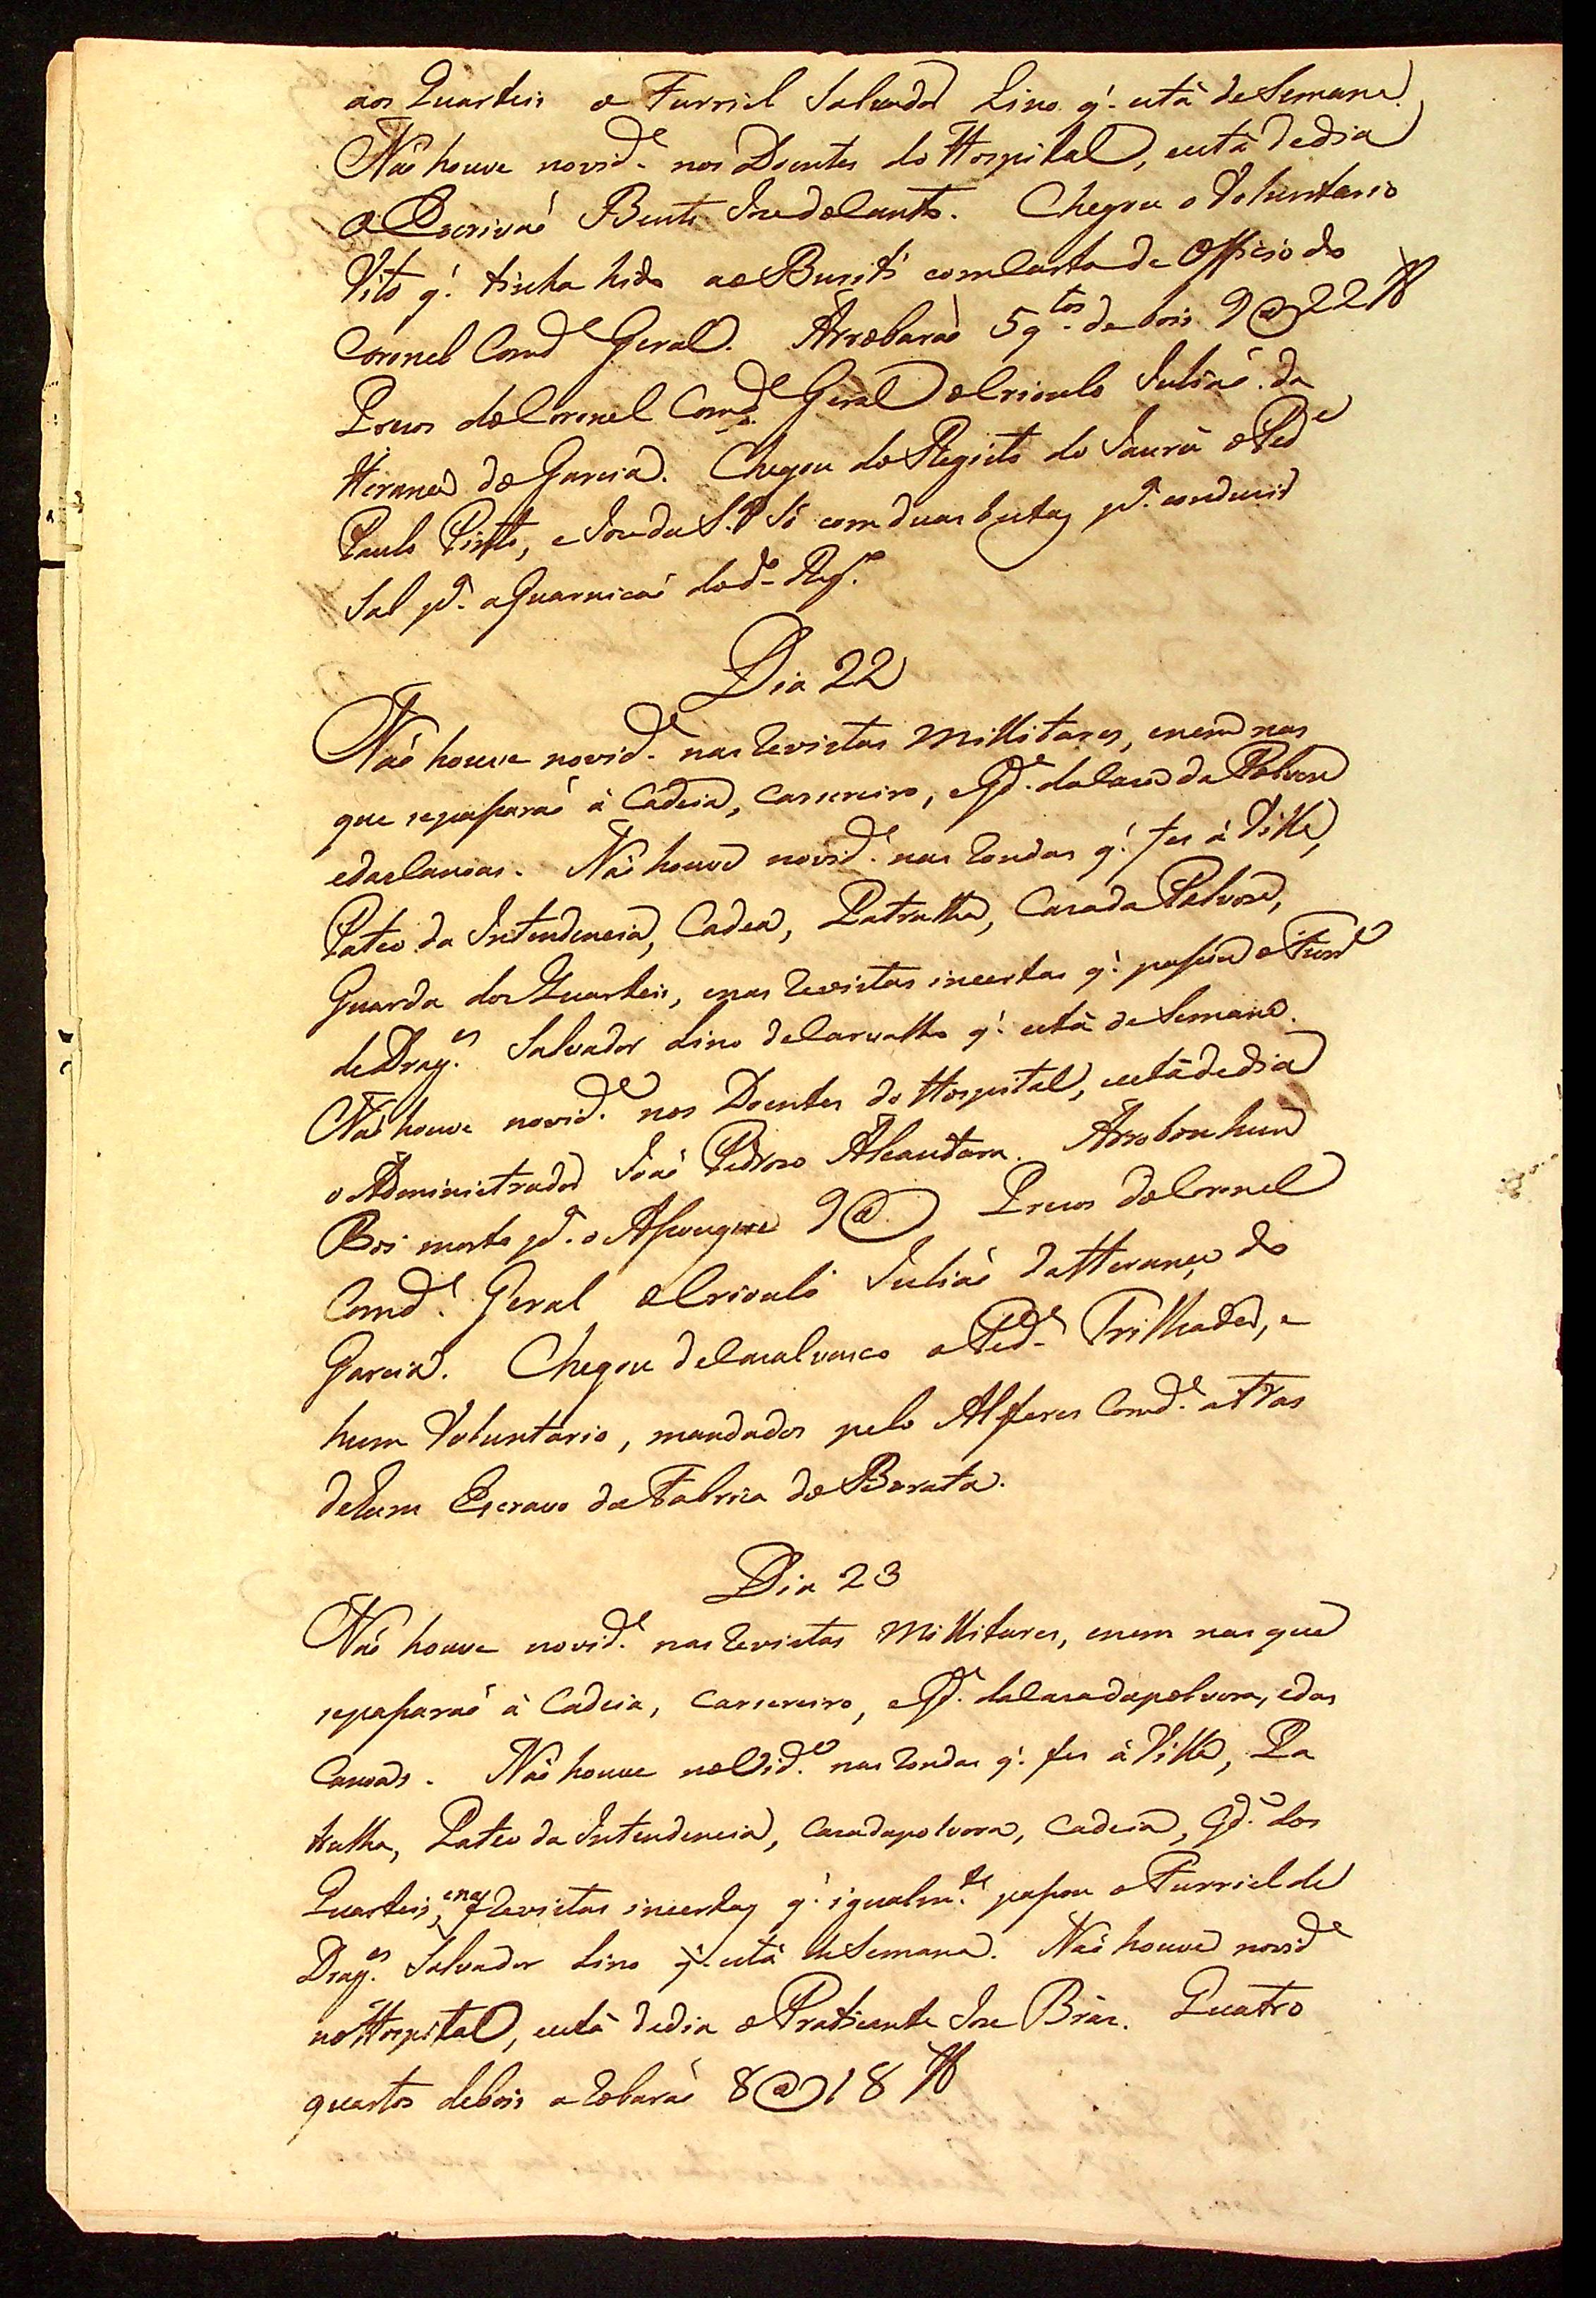 aos Quarteis o Furriel Salvador Lino q.' está de Semana.
Não houve novid.e nos Doentes do Hospital, está de dia
o Escrivaõ Bento Joze dos Santos. Chegou o Voluntario
Vito q.' tinha hido ao Buriti com Carta de Officio do
Coronel Comd.e Geral. Arrobaraõ 5 q.tos de bois 9 @ 22 ℔
Prezos do Coronel Comd.e Geral o Crioulo Juliaõ da
Herança do Garcia. Chegou do Registo do Jaurú o Ped.e
Paulo Pinto, e Joze da S.a Só com duas bestas p.a conduzir
Sal p.a a Guarniçaõ do d.o Reg.o
Dia 22
Naõ houve novid.e nas Revistas Millitares, e nem nas
que se passaraõ à Cadeia, Carsereiro, e G.da da Caza da Polvora
e das Canoas. Naõ houve novid.e nas Rondas q.' fes á Villa,
Pateo da Intendencia, Cadea, Patrulha, Caza da Polvora,
Guarda dos Quarteis, e nas Revistas incertas q.' passou o Furr.el
de Drag.es Salvador Lino de Carvalho q.' está de Semana.
Naõ houve novid.e nos Doentes do Hospital, está de dia
o Administrador Joaõ Pedrozo Alcantara. Arrobou hum
Boi morto p.a o Assougue 9 @ Prezos do Coronel
Comd.e Geral o Crioulo Juliaõ da Herança do
Garcia. Chegou de Casalvasco o Ped.e Trilhada, e
hum Voluntario, mandados pelo Alferes Comd.e atras
de hum Escravo da Fabrica do Barata.
Dia 23
Naõ houve novid.e nas Revistas Millitares, e nem nas que
se passaraõ à Cadeia, Carsereiro, e G.da da Caza da polvora, e das
Canoas. Naõ houve novid.e nas Rondas q.' fes á Villa, Pa
trulha, Pateo da Intendencia, Caza da polvora, Cadeia, G.da dos
Quarteis, e nas Revistas incertas q.' igualm.te passou o Furriel de
Drag.es Salvador Lino q.' está de Semana. Naõ houve novid.e
no Hospital, está de dia o Praticante Joze Bras. Quatro
quartos de bois aRobaraõ 8 @ 18 ℔